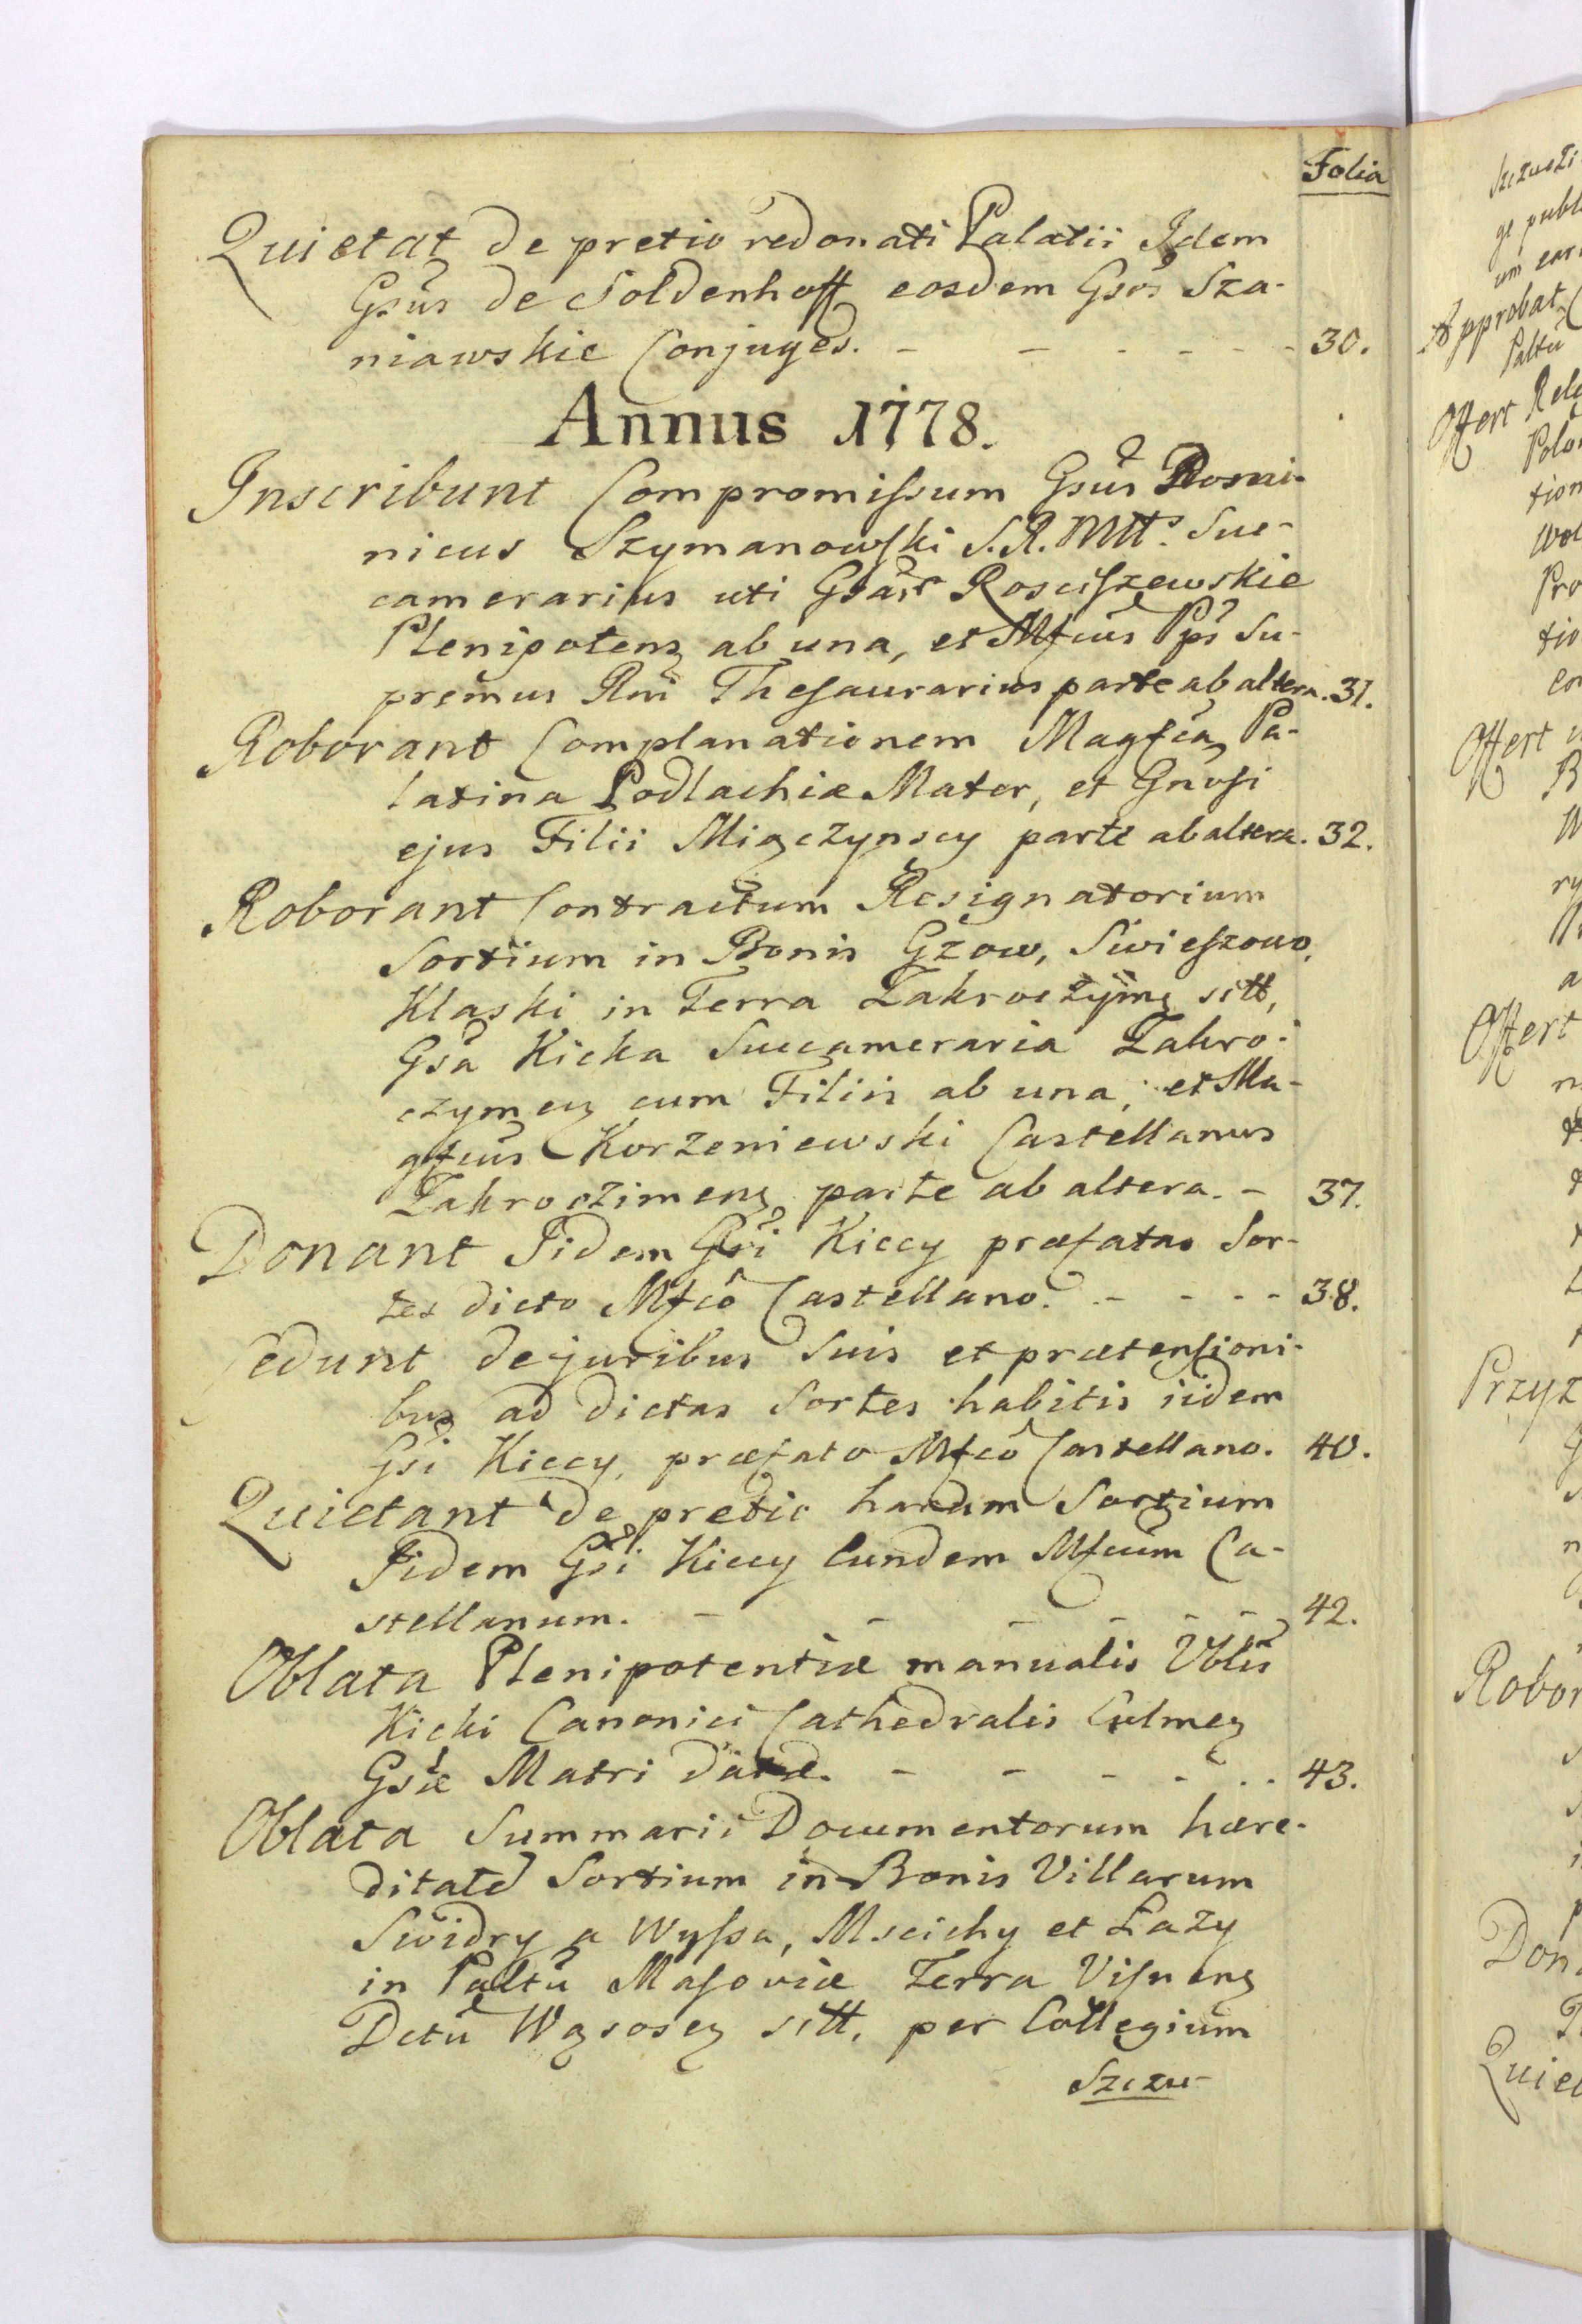 Folia
Quietat de pretio redonati Palatii Idem
Gsus de Soldenhoff eosdem Gsos Sza-
niawskie Conjuges. - - - - - - 30.
Annus 1778.
Inscribunt Compromissum Gsus Domi-
nicus Szymanowski S. R. Mtt. Suc-
camerarius uti Gsae Rosciszewskie
Plenipotens ab una, et Mfcus Pps Su-
premus Rni Thesaurarius parte ab altera. 31.
Roborant Complanationem Magfca Pa-
latina Podlachiæ Mater, et Gnosi
ejus Filii Miączynscy parte ab altera. 32.
Roborant Contractum Resignatorium
Sortium in Bonis Gzow, Swieszowo,
Klaski in Terra Zakroczyme sitt,
Gsa Kicka Succameraria Zakro-
czymen cum Filiis ab una, et Ma-
gfcus Korzeniewski Castellanus
Zakroczimens parte ab altera. - 37.
Donant Iidem Gsi Kiccy præfatas Sor-
tes dicto Mfco Castellano. - - - - 38.
Cedunt de juribus suis et prætensioni-
bus ad dictas Sortes habitis iidem
Gsi Kiccy, præfato Mfco Castellano. 40.
Quietant de pretio harum Sortium
Iidem Gsi Kiccy Eundem Mfcum Ca-
stellanum. - - - - - - 42.
Oblata Plenipotentiæ manualis Vblis
Kicki Canonici Cathedralis Culmen
Gsæ Matri datæ. - - - - - - 43.
Oblata Summarii Documentorum hære-
ditate Sortium in Bonis Villarum
Swidry a Wyssa, Mscichy et Łazy
in Paltu Masoviæ Terra Visnens
Dctu Wąsosen sitt, per Collegium
Szczu-